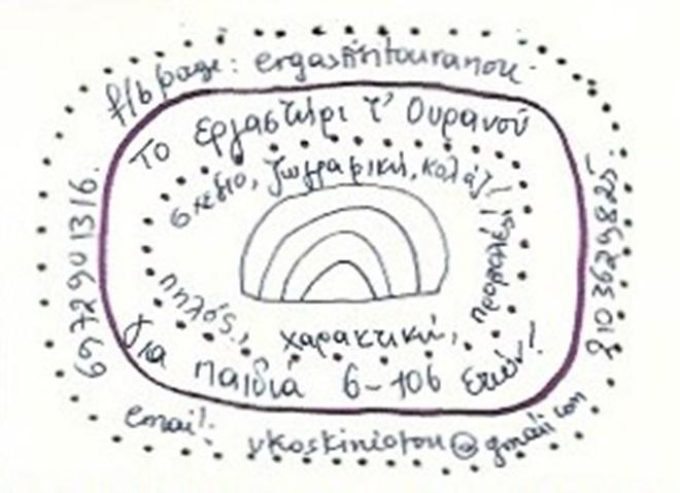 f/b page: ergastiritouranou
Το εργαστήρι τ' Ουρανού
σχέδιο, ζωγραφική, κολάζ!
χαρακτική,
για παιδιά 6-106 ετών!
6972901316.
2103629825.
email: vkoskiniotou@gmail.com